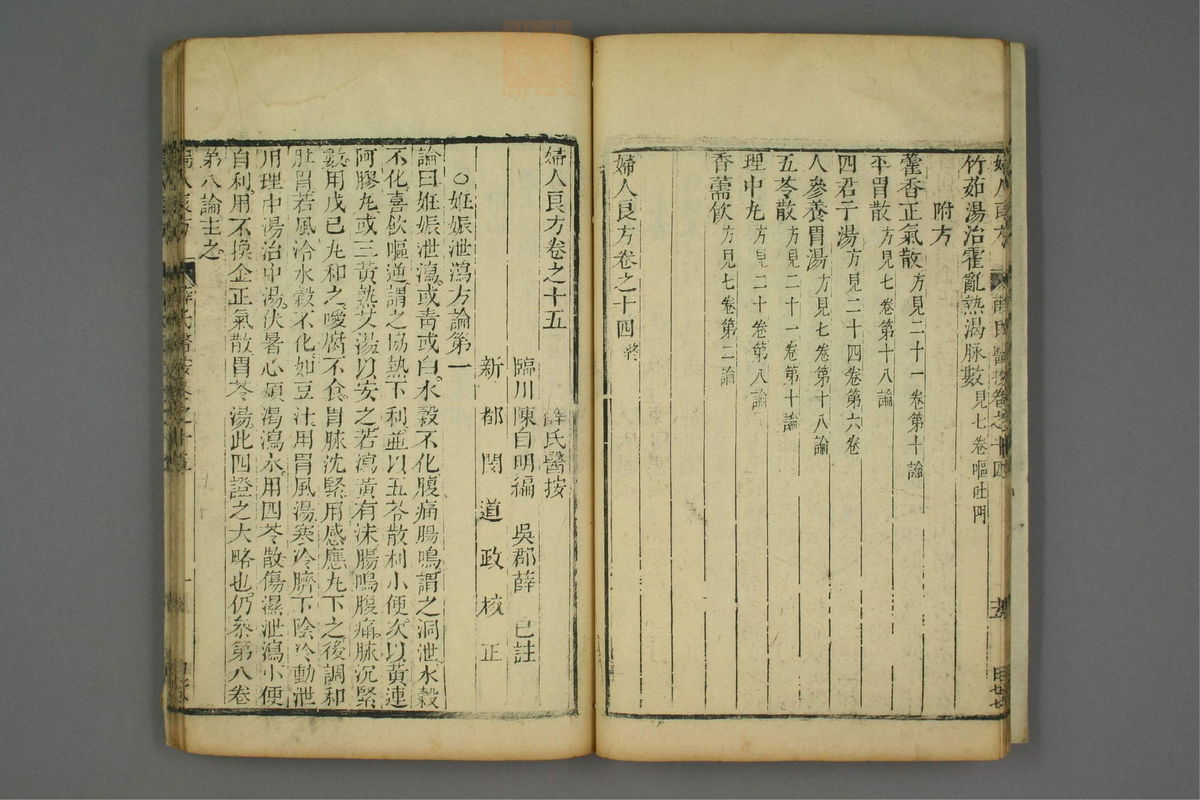 竹茹湯治霍亂熱渴脉數見七卷嘔吐門
附方
藿香正氣散方見二十一卷第十論
平胃散方見七卷第十八論
四君子湯方見二十四卷第六卷
人參養胃湯方見七卷第十八論
五苓散方見二十一卷第十論
理中丸方見二十卷第八論
香薷飲方見七卷第二論
婦人良方卷之十四終
婦人良方卷之十五 薛氏醫按
臨川陳自明編 吳郡薛 已註
新都閔道政核正
○姙娠泄瀉方論第一
論曰姙娠泄瀉或青或白水穀不化腹痛腸鳴謂之洞泄水穀
不化喜飲嘔逆謂之協熱下利並以五苓散利小便次以黃連
阿膠丸或三黃熟艾湯以安之若瀉黃有沫腸鳴腹痛脉沉緊
數用戊已丸和之噯腐不食胃脉沈緊用感應丸下之後調和
脾胃若風冷水穀不化如豆汁用胃風湯寒冷臍下陰冷動泄
用理中湯治中湯伏暑心煩渴瀉水用四苓散傷濕泄瀉小便
自利用不換金正氣散胃苓湯此四證之大略也仍參第八卷
第八論主之